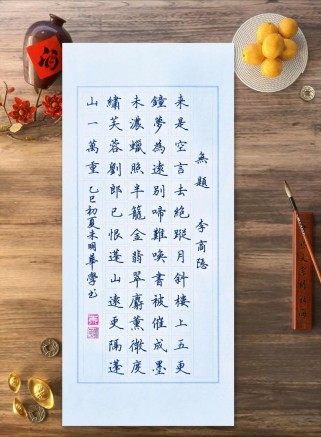 無題 李商隱
来是空言去絕蹤月斜樓上五更
鐘夢為遠別啼難喚書被催成墨
未濃蠟照半籠金翡翠麝薰微度
繡芙蓉劉郎已恨蓬山遠更隔蓬
山一萬重 乙巳初夏朱明華學书
酒